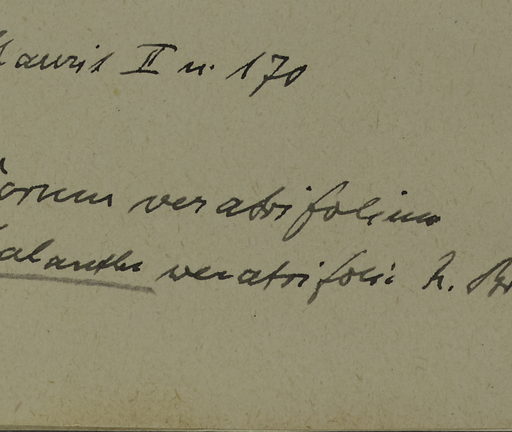 Maurit II n. 170
orum veratrifolium
alanthe veratrifoli R. Br